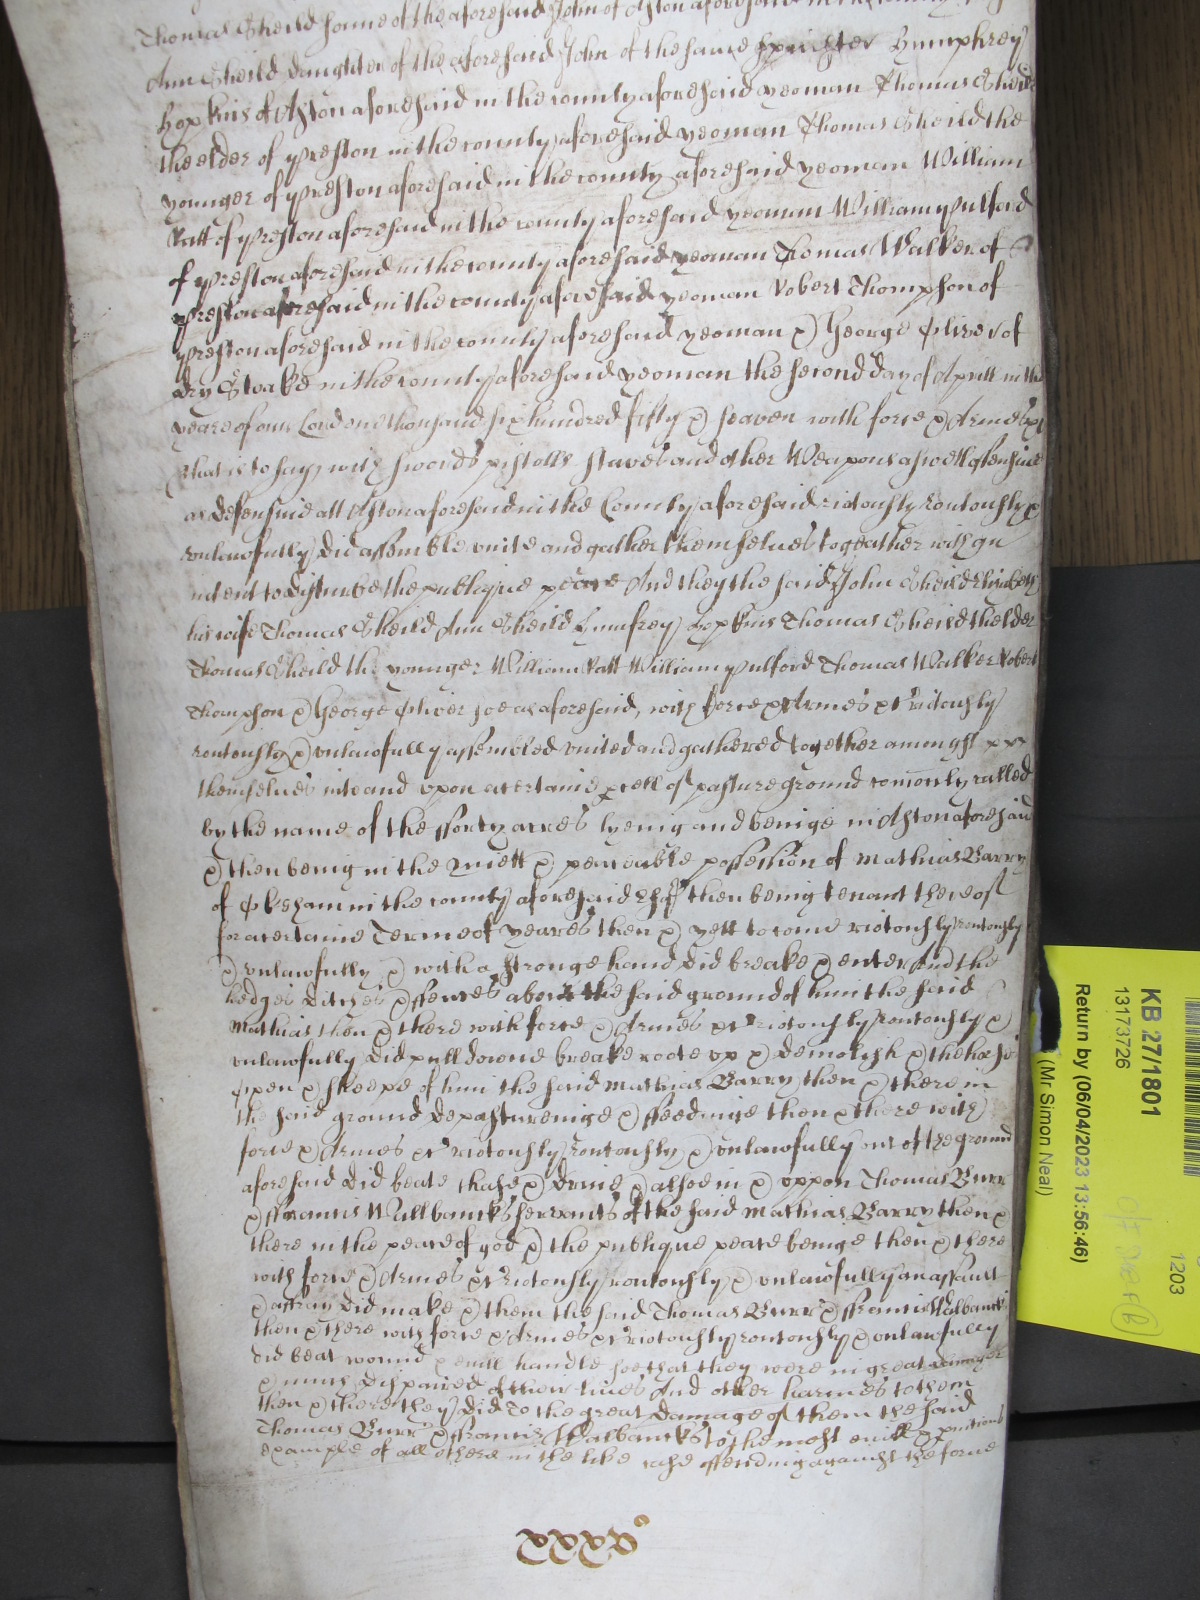 Thomas Sheild sonne of the aforesaid John of Aston aforesaid in the County
Ann Sheild daughter of the aforesaid John of the same Spinster Humphrey
Hopkins of Aston aforesaid in the county aforesaid yeoman Thomas Sheild
the elder of Preston in the county aforesaid yeoman Thomas Sheild the
younger of Preston aforesaid in the county aforesaid yeoman William
Ratt of Preston aforesaid in the county aforesaid yeoman William Pulford
of Preston aforesaid in the county aforesaid yeoman Thomas Walker of
Preston aforesaid in the county aforesaid yeoman Robert Thompson of
Preston aforesaid in the county aforesaid yeoman & George Oliver of
dry Stoake in the county aforesaid yeoman the second day of Aprill in the
yeare of our Lord one thousand six hundred fifty & seaven with force & Armes &c
(that is to say) with swords pistolls staves and other Weapons as well ofensive
as defensive att Aston aforesaid in the County aforesaid riotously routously &
unlawfully did assemble unite and gather themselves togeather with an
intent to disturbe the publique peace And they the said John Sheild Elizabeth
his wife Thomas Sheild Ann Sheild Humfrey Hopkins Thomas Sheild thelder
Thomas Sheild the younger William Ratt William Pulford Thomas Walker Robert
Thompson & George Oliver soe as aforesaid, with force & Armes &c riotously
routously & unlawfully assembled united and gathered together amongst
themselves into and upon a certaine pcell of pasture ground comonly called
by the name of the fforty acres lyeing and beinge in Aston aforesaid
& then being in the quiett & peaceable possession of Mathias Barry
of Okeham in the county aforesaid Esqr then being tenant thereof
for a certaine Terme of yeares then & yett to come riotously routously
& unlawfully & with a stronge hand did breake & enter And the
hedges ditches & ffences about the said ground of him the said
Mathias then & there with force & Armes &c riotously routously &
unlawfully did pull downe breake roote up & demolish & the
Oxen & sheepe of him the said Mathias Barry then & there in
the said ground depastureinge & ffeedinge then & there with
force & Armes &c riotously routously & unlawfully out of the ground
aforesaid did beate chase & drive & alsoe in & uppon Thomas Burr
& ffrancis Wallbancks servants of the said Mathias Barry then &
there in the peace of god & the publique peace beinge then & there
with force & Armes &c riotously routously & unlawfully an assault
& affray did make & them the said Thomas Burr & ffrancis Walbancks
then & there with force & Armes &c riotously routously & unlawfully
did beat wound & evill handle soe that they were in great danger
& much dispaired of their lives And other harmes to them
then & there they did To the great damage of them the said
Thomas Burr & ffrancis Walbancks to the most evill & pnitious
example of all others in the like case offending against the forme
KB 27/1801
13173726
Return by (06/04/2023 13:56:46)
(Mr Simon Neal)
1203